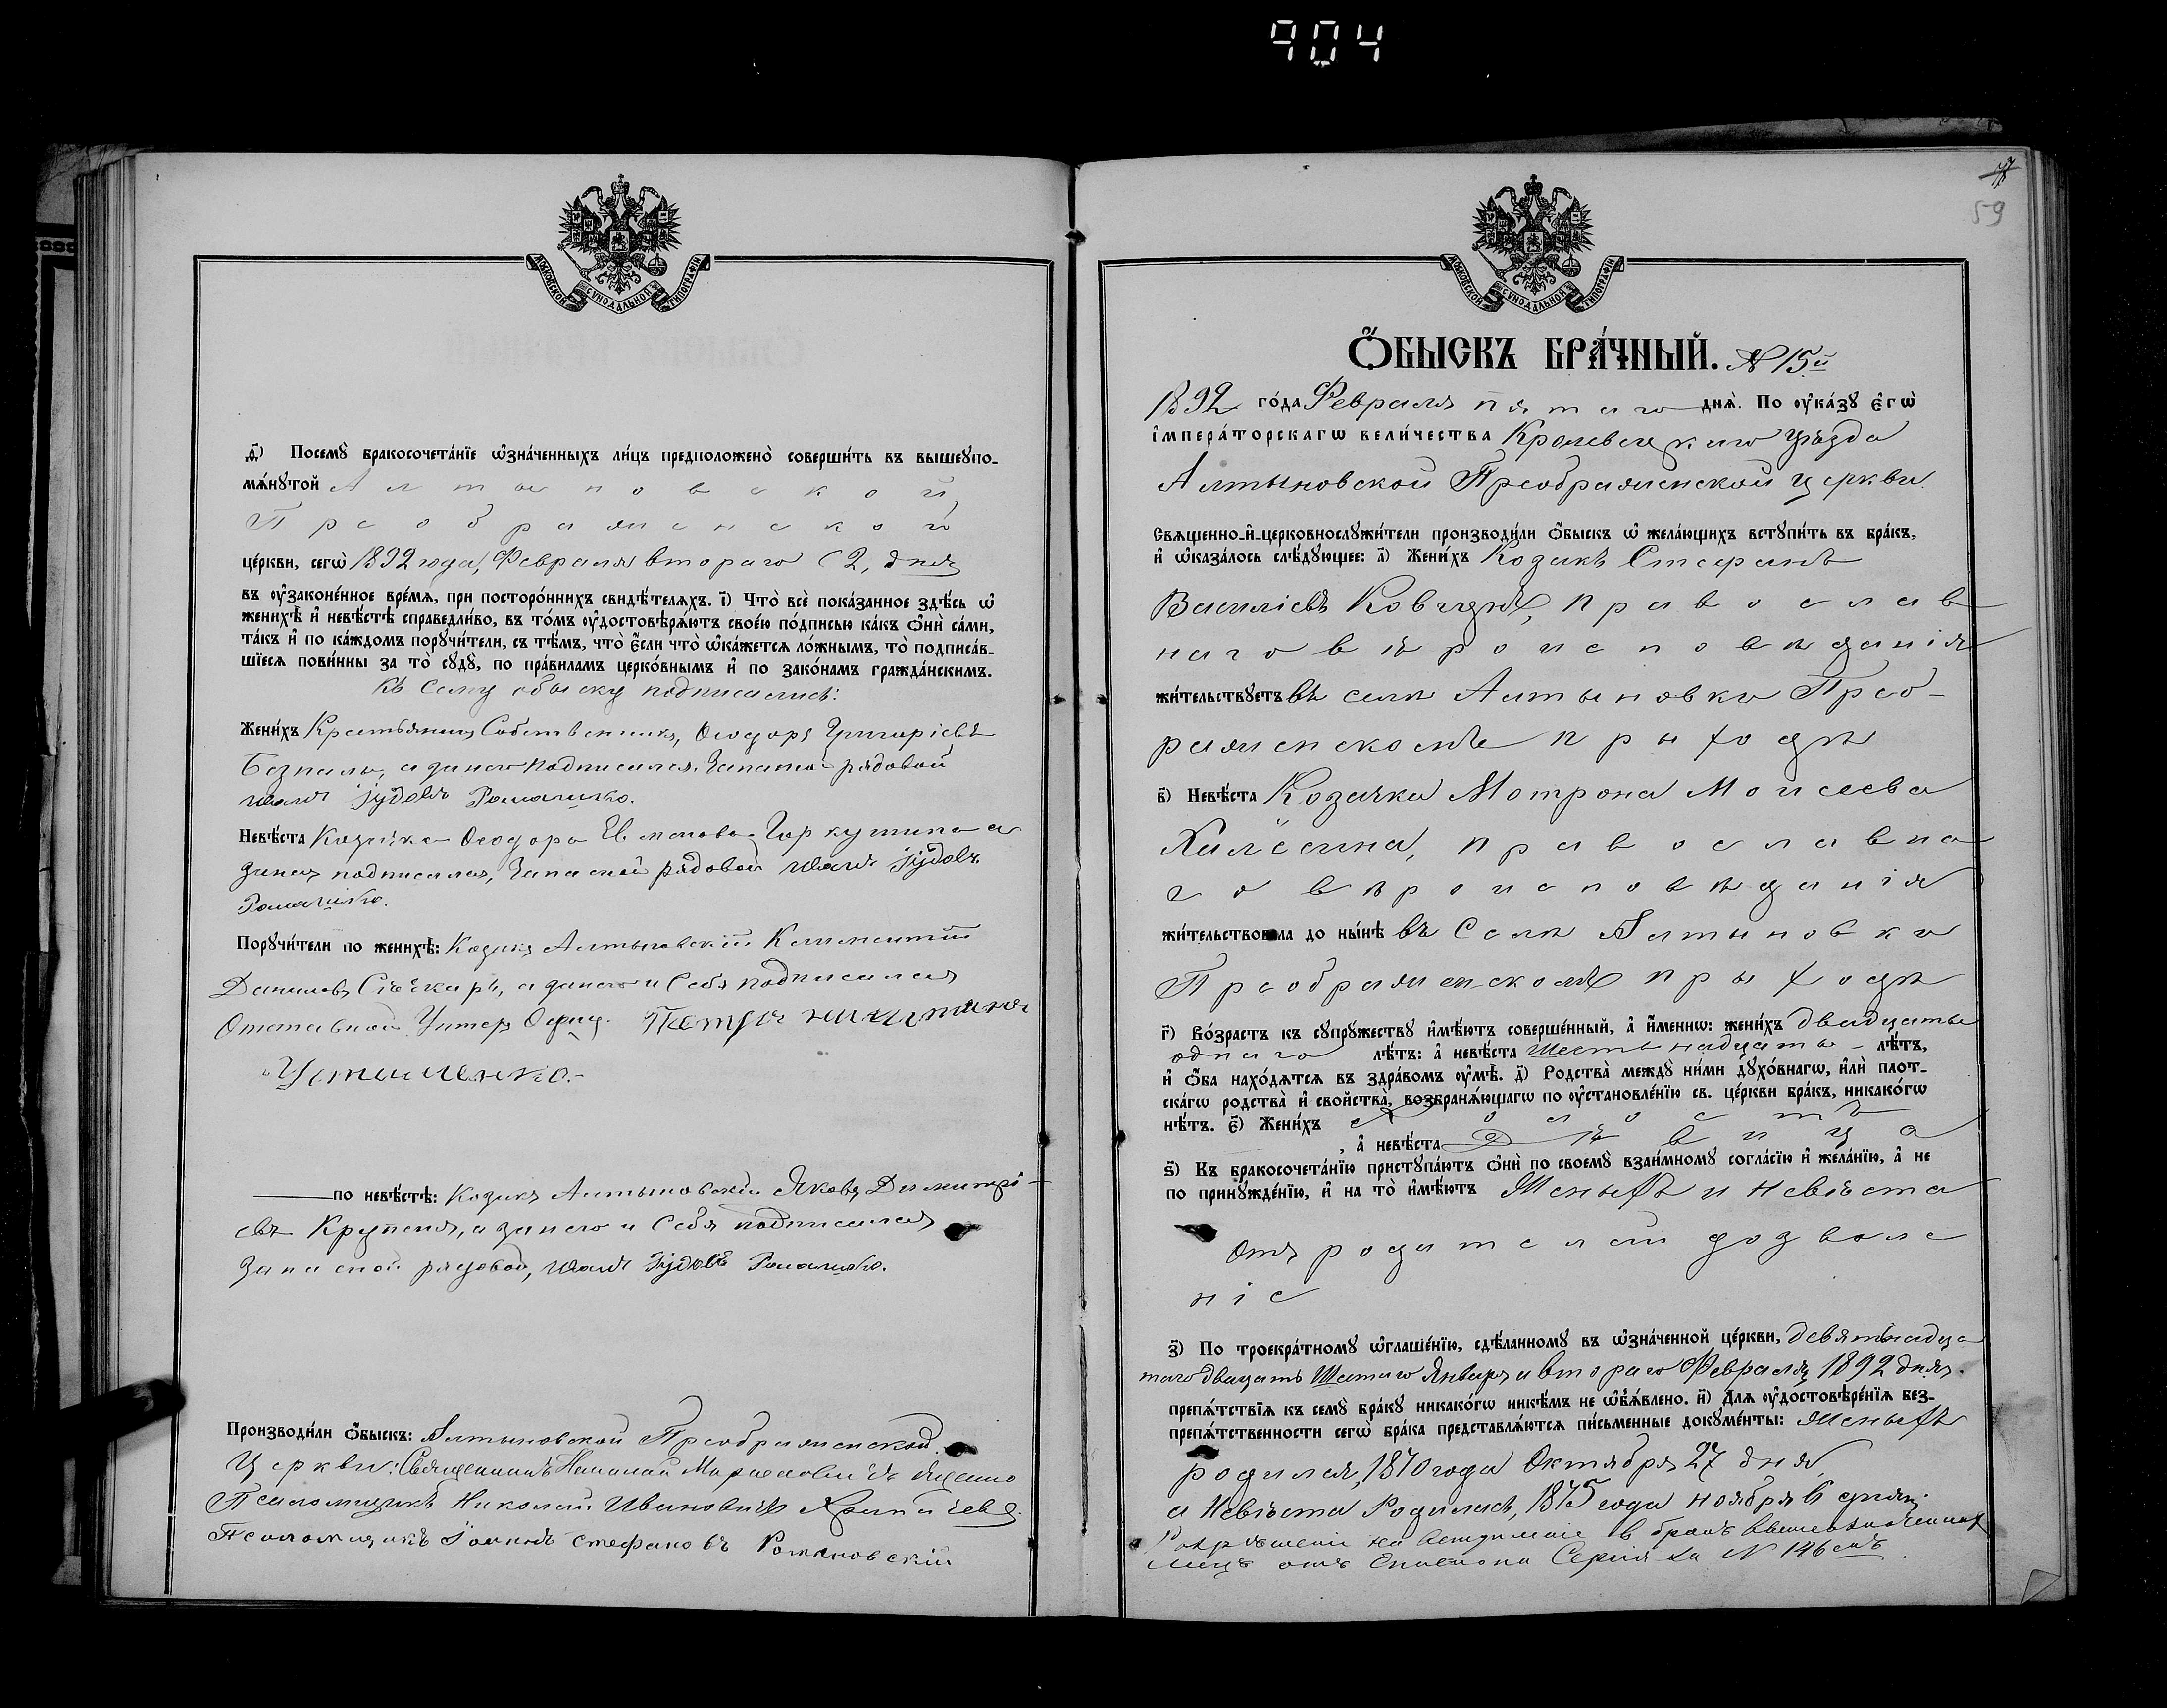 904
МОСКОВСКОЙ СѴНОДАЛЬНОЙ ТИПОГРАФІИ
ѳ҃) Посемꙋ̀ бракосочета́нїе ѡ҆зна́ченныхъ ли́цъ предположено̀ соверши́ть въ вышеꙋпо-
мѧ́нꙋтой Алтыновской
Преображенской
це́ркви, сегѡ̀ 1892 года, Февраля втораго (2, дня
въ ᲂу҆законе́нное вре́мѧ, при посторо́ннихъ свидѣ́телѧхъ. і҃) Что̀ всѐ пока́занное здѣ́сь ѡ҆
женихѣ̀ и҆ невѣ́стѣ справедли́во, въ то́мъ ᲂу҆достовѣрѧ́ютъ свое́ю по́дписью ка́къ ѻ҆нѝ са́ми,
та́къ и҆ по ка́ждомъ порꙋчи́тели, съ тѣ́мъ, что̀ є҆́сли что̀ ѡ҆ка́жетсѧ ло́жнымъ, то̀ подписа́в-
шїесѧ пови́нны за то̀ сꙋдꙋ̀, по пра́виламъ церко́внымъ и҆ по зако́намъ гражда́нскимъ.
Къ сему обыску подписались:
Жени́хъ Крестьянинъ Собственникъ, Ѳеодоръ Григоріевъ
Безпалы, а за него подписался, Запасной рядовой
Іудовъ Ромашко.
Невѣ́ста Козачка Ѳеодора
за нея подписался, Запасной рядовой Іудовъ
Ромашко.
Порꙋчи́тели по женихѣ̀: Козакъ Алтыновскій Климентій
Даниловъ а за него и себя подписался
Отставной Унтеръ Офиц. Петръ Никитинъ
Устименко.
по невѣ́стѣ: Козакъ Алтыновскій Яковъ Димитрі-
евъ Крупеня, а за него и себя подписался
Запасной рядовой, Іудовъ Ромашко.
Производи́ли ѻ҆́быскъ: Алтыновской Преображенской
Церкви: Священникъ Николай
Псаломщикъ Николай Ивановичъ
Псаломщикъ Іоаннъ Стефановъ Романовскій
59
МОСКОВСКОЙ СѴНОДАЛЬНОЙ ТИПОГРАФІИ
Ѻ҆́БЫСКЪ БРА́ЧНЫЙ. № 15й
1892 го́да Февраля пятаго днѧ̀. По ᲂу҆ка́зꙋ є҆гѡ̀
і҆мпера́торскагѡ вели́чества Кролевецкаго Уѣзда
Алтыновской Преображенской церкви
Свѧщенно-и҆-церковнослꙋжи́тели производи́ли ѻ҆́быскъ ѡ҆ жела́ющихъ встꙋпи́ть въ бра́къ,
и҆ ѡ҆каза́лось слѣ́дꙋющее: а҃) Жени́хъ Козакъ Стефанъ
Василіевъ православ
наго вѣроисповѣданія
жи́тельствꙋетъ въ селѣ Алтыновкѣ Преоб-
раженскомъ приходѣ
в҃) Невѣ́ста Козачка Мотрона Моисеева
православна
го вѣроисповѣданія
жи́тельствовала до ны́нѣ въ Селѣ Алтыновкѣ
Преображенскомъ приходѣ
г҃) Во́зрастъ къ сꙋпрꙋ́жествꙋ и҆мѣ́ютъ соверше́нный, а҆ и҆́меннѡ: жени́хъ двадцать
одного лѣ́тъ: а҆ невѣ́ста шестьнадцать лѣ́тъ,
и҆ ѻ҆́ба нахо́дѧтсѧ въ здра́вомъ ᲂу҆мѣ̀. д҃) Родства̀ междꙋ̀ ни́ми дꙋхо́внагѡ, и҆лѝ плот-
ска́гѡ родства̀ и҆ свойства̀, возбранѧ́ющагѡ по ᲂу҆становле́нїю св. це́ркви бра́къ, никако́гѡ
нѣ́тъ. є҃) Жени́хъ холостъ
, а҆ невѣ́ста Дѣвица
ѕ҃) Къ бракосочета́нїю пристꙋпа́ютъ ѻ҆нѝ по своемꙋ̀ взаи́мномꙋ согла́сїю и҆ жела́нїю, а҆ не
по принꙋжде́нїю, и҆ на то̀ и҆мѣ́ютъ Женихъ и невѣста
отъ родителей дозволе
ніе
з҃) По троекра́тномꙋ ѡ҆глаше́нїю, сдѣ́ланномꙋ въ ѡ҆зна́ченной це́ркви, девятнадца
таго двацать Шестаго Января и втораго Февраля 1892 дня.
препѧ́тствїѧ къ семꙋ̀ бра́кꙋ никако́гѡ никѣ́мъ не ѡ҆б̾ѧ́влено. и҃) Длѧ ᲂу҆достовѣре́нїѧ без-
препѧ́тственности сегѡ̀ бра́ка представлѧ́ютсѧ пи́сьменные докꙋме́нты: Женихъ
родился, 1870 года Октября 27 дня
а Невѣста Родилась, 1875 года ноября 6 дня
Разрѣшеніе на вступленіе въ бракъ вышеозначенныхъ
лицъ отъ Епископа Сергія за № 146емъ